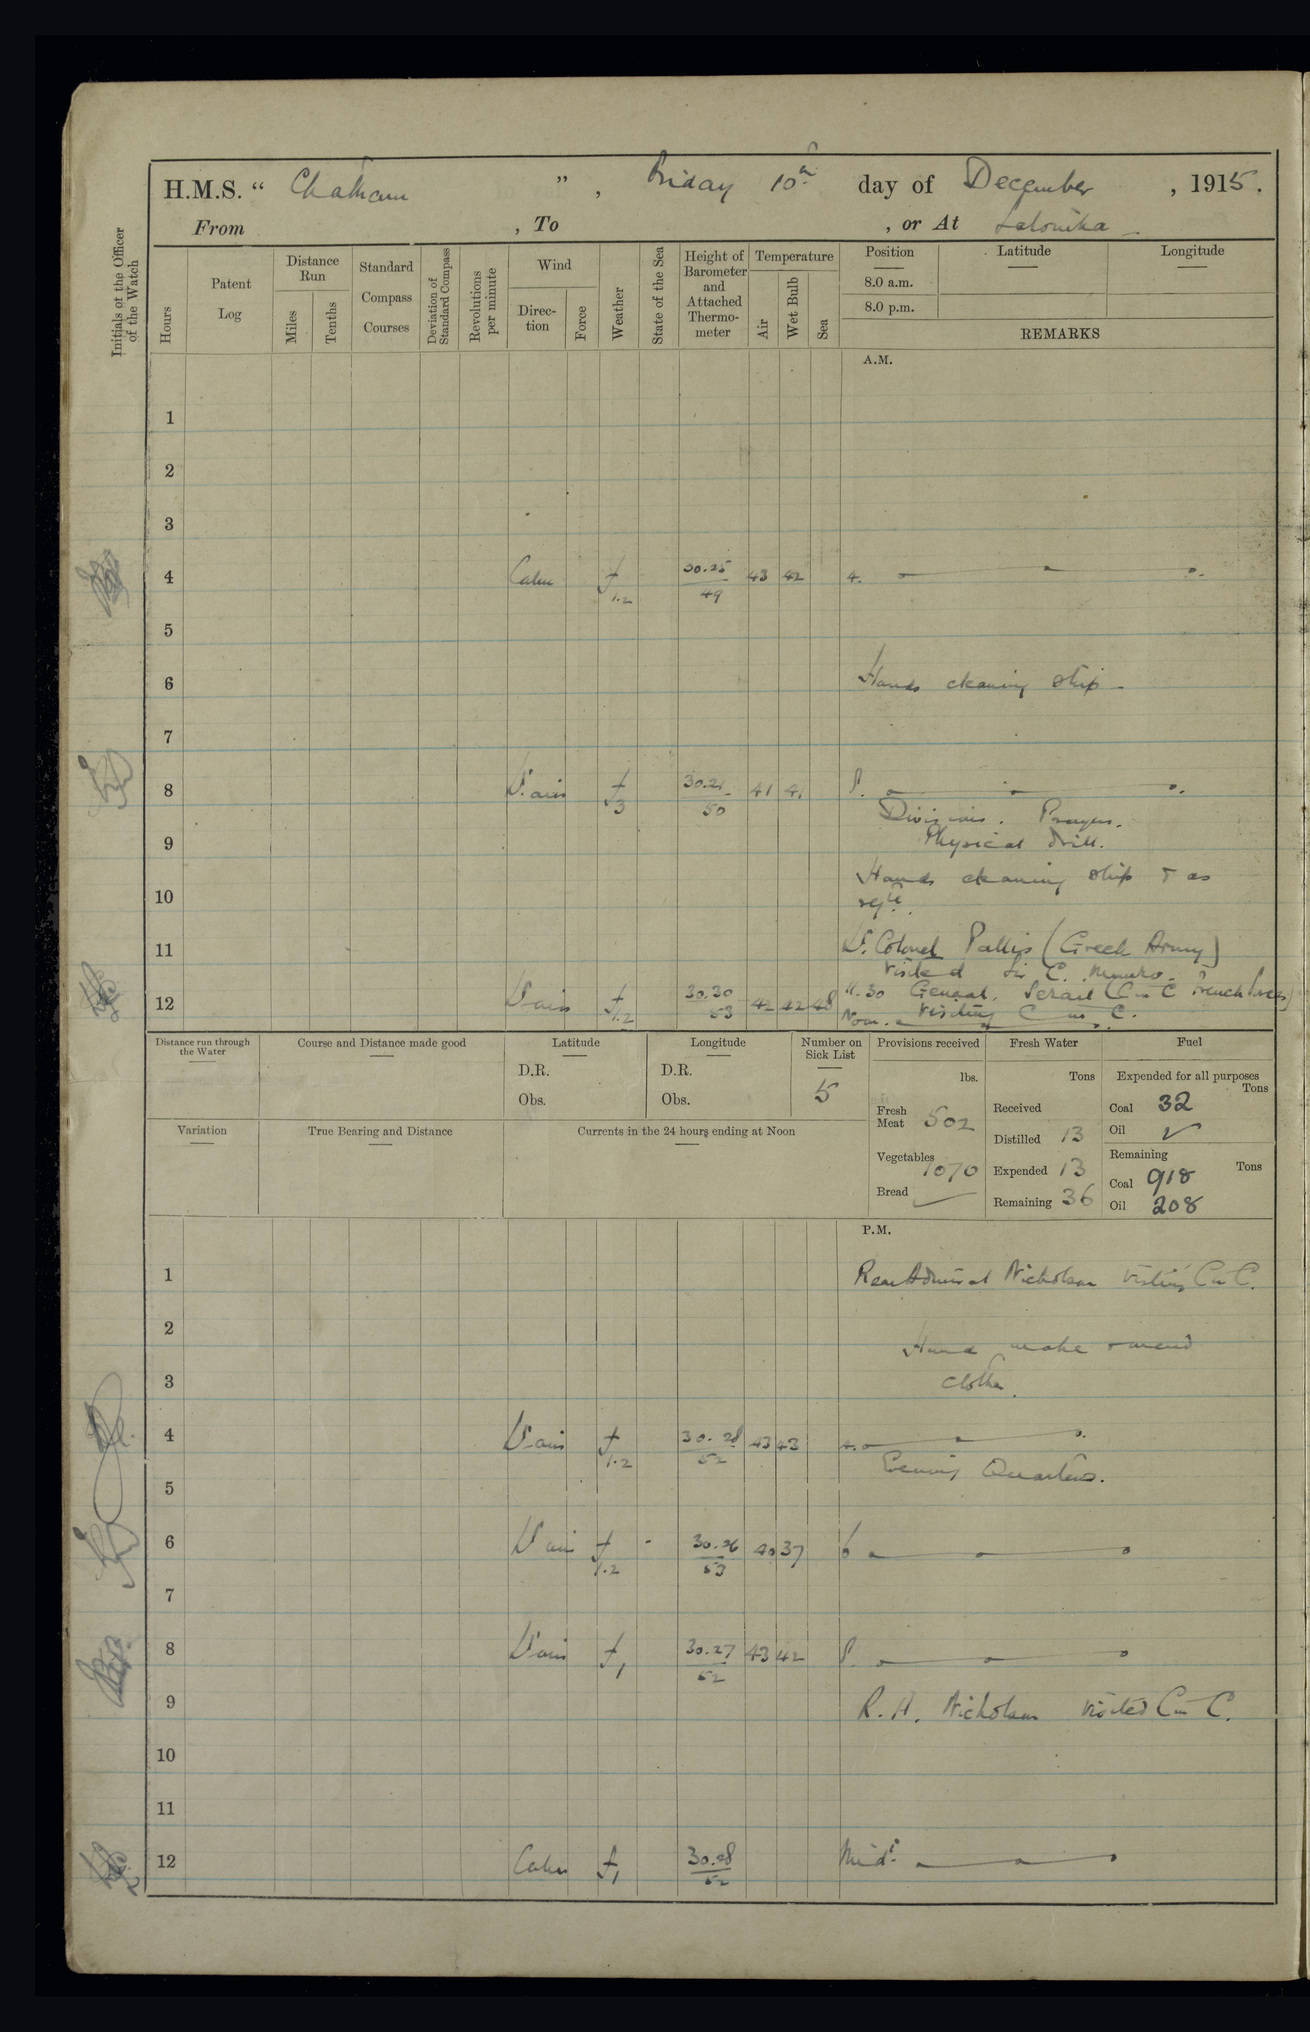 H.M.S. “ Chatham ” , Friday 10th day of December , 1915.
From , To , or At Salonika
Initials of the Officer of the Watch
Hours
Patent Log
Distance Run
Miles
Tenths
Standard Compass Courses
Deviation of Standard Compass
Revolutions per minute
Wind
Direc- tion
Force
Weather
State of the Sea
Height of Barometer and Attached Thermo- meter
Temperature
Air
Wet Bulb
Sea
Position
8.0 a.m.
8.0 p.m.
Latitude
Longitude
REMARKS
A.M.
1
2
3
4 Calm f 1.2 30.25 49 43 42 4.
5
6 Hands cleaning ship -
7
8 Lt. airs f 3 50 41 8.
Divisions. Prayers.
9 Physical drill.
Hands cleaning ship & as
10 reqte.
11 Lt. Colonel Pallis (Greek Army)
visited Sir C. Munro.
11.30 General Serail (C in C French forces)
12 Lt airs f 1.2 30.30 53 42 42 48 Noon. visiting C in C.
Distance run through the Water
Course and Distance made good
Latitude
D.R.
Obs.
Longitude
D.R.
Obs.
Number on Sick List
5
Provisions received
lbs.
Fresh Meat 502
Vegetables 1070
Bread
Fresh Water
Tons
Received
Distilled 13
Expended 13
Remaining 36
Fuel
Expended for all purposes
Tons
Coal 32
Oil ✓
Remaining
Tons
Coal 918
Oil 208
Variation
True Bearing and Distance
Currents in the 24 hours ending at Noon
P.M.
1 Rear Admiral Nicholson visiting C in C.
2
Hands make & mend
3 clothes.
4 Lt airs f 1.2 30.28 52 43 43 4.
Evening Quarters.
5
6 Lt airs f 1.2 - 30.26 53 40 37 6
7
8 Lt airs f 1 30.27 52 43 42 8.
9 R.A. Nicholson visited C in C.
10
11
12 Calm f 1 30.28 52 Midt.